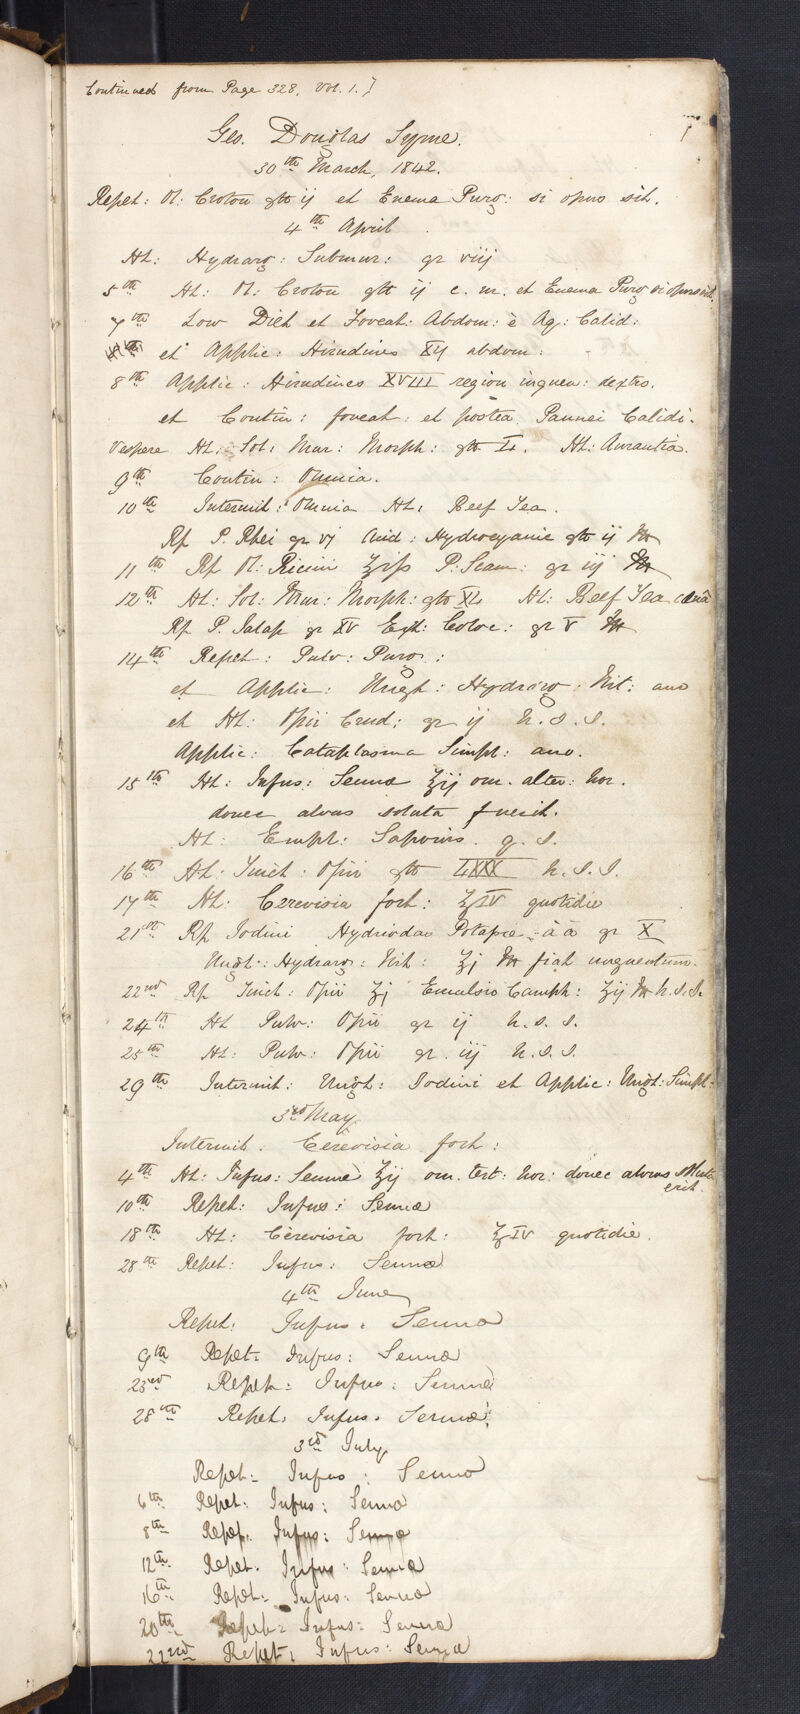 Continued from Page 328, Vol. 1.]
1
Geo. Douglas Syme.
30th March, 1842.
Repet: Ol: Croton gtt ij et Enema Purg: si opus sit.
4th April
Ht: Hydrarg: Submur: gr viij
5th Ht: Ol: Croton gtt ij c. m. et Enema Purg si opus sit.
7th Low Diet et Foveat: Abdom: c Aq: Calid:
et Applic: Hirudines XIJ abdom:
8th Applic: Hirudines XVIII region inguen: dextro.
et Contin: foveat: et postea Pannei Calidi.
Vespere Ht: Sol: Mur: Morph: gtt L. Ht: Aurantia.
9th Contin: Omnia.
10th Intermit: Omnia Ht: Beef Tea.
Rp P. Rhei gr vj Acid: Hydrocyanic gtt ij M
11th Rp Ol: Ricini ʒiſs P. Scam: gr iij M
12th Ht: Sol: Mur: Morph: gtt XL Ht: Beef Tea
Rp P. Jalap gr XV Ext: Coloc: gr V M
14th Repet: Pulv: Purg:
et Applic: Ungt: Hydrarg: Nit: ano
et Ht: Opii Crud: gr ij h. s. s.
Applic: Cataplasma Simpl: ano.
15th Ht: Infus: Sennæ ʒij om. alter: hor.
donec alvus soluta fuerit.
Ht: Empl: Saponis. q. s.
16th Ht: Tinct: Opii gtt LXXX h. s. s.
17th Ht: Cerevisia fort: ℥IV quotidie
21st Rp Iodini Hydriodas Potassæ āā gr X
Ungt: Hydrarg: Nit: ʒj M fiat unguentum.
22nd Rp Tinct: Opii ʒj Emulsio Camph: ʒij M h. s. s.
24th Ht Pulv: Opii gr ij h. s. s.
25th Ht: Pulv: Opii gr. iij h. s. s.
29th Intermit: Ungt: Iodini et Applic: Ungt: Simpl:
3rd May
Intermit: Cerevisia fort:
4th Ht: Infus: Sennæ ʒij om. tert: hor: donec alvus soluta
erit.
10th Repet: Infus: Sennæ
18th Ht: Cerevisia fort: ℥IV quotidie.
28th Repet: Infus: Sennæ
4th June
Repet: Infus: Sennæ
9th Repet: Infus: Sennæ
23rd Repet: Infus: Sennæ
28th Repet: Infus: Sennæ
3rd July
Repet: Infus: Sennæ
6th Repet: Infus: Sennæ
8th Repet: Infus: Sennæ
12th Repet: Infus: Sennæ
16th Repet: Infus: Sennæ
20th Repet: Infus: Sennæ
22nd Repet: Infus: Sennæ